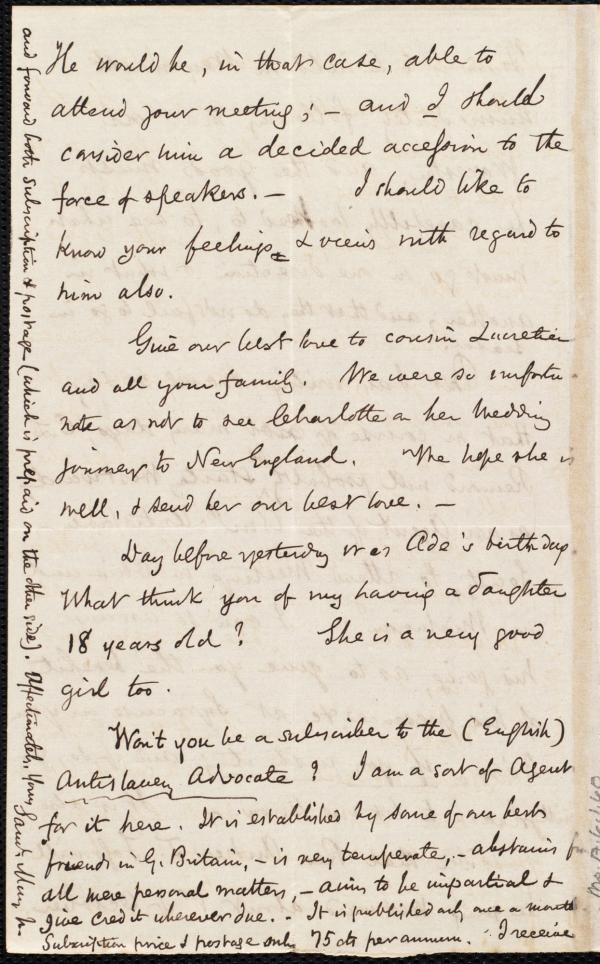 He would be, in that case, able to
attend your meeting; — and I should
consider him a decided accession to the
force of speakers. — I should like to
know your feelings & views with regard to
him also.
Give our best love to cousin Lucretia
and all your family. We were so unfortu-
nate as not to see Charlotte on her Wedding
journey to New England. We hope she is
well, & send her our best love. —
Day before yesterday was Ada's birthday.
What think you of my having a daughter
18 years old? She is a very good
girl too.
Won't you be a subscriber to the (English)
Antislavery Advocate? I am a sort of Agent
for it here. It is established by some of our best
friends in G. Britain, — is very temperate, — abstains
all mere personal matters, — aims to be impartial &
give credit wherever due. - It is published only once a month
Subscription price & postage only 75 cts per annum. I receive
and forward both subscription & postage (which is prepaid on the other side). Affectionately, Yours Saml. May, Jr.